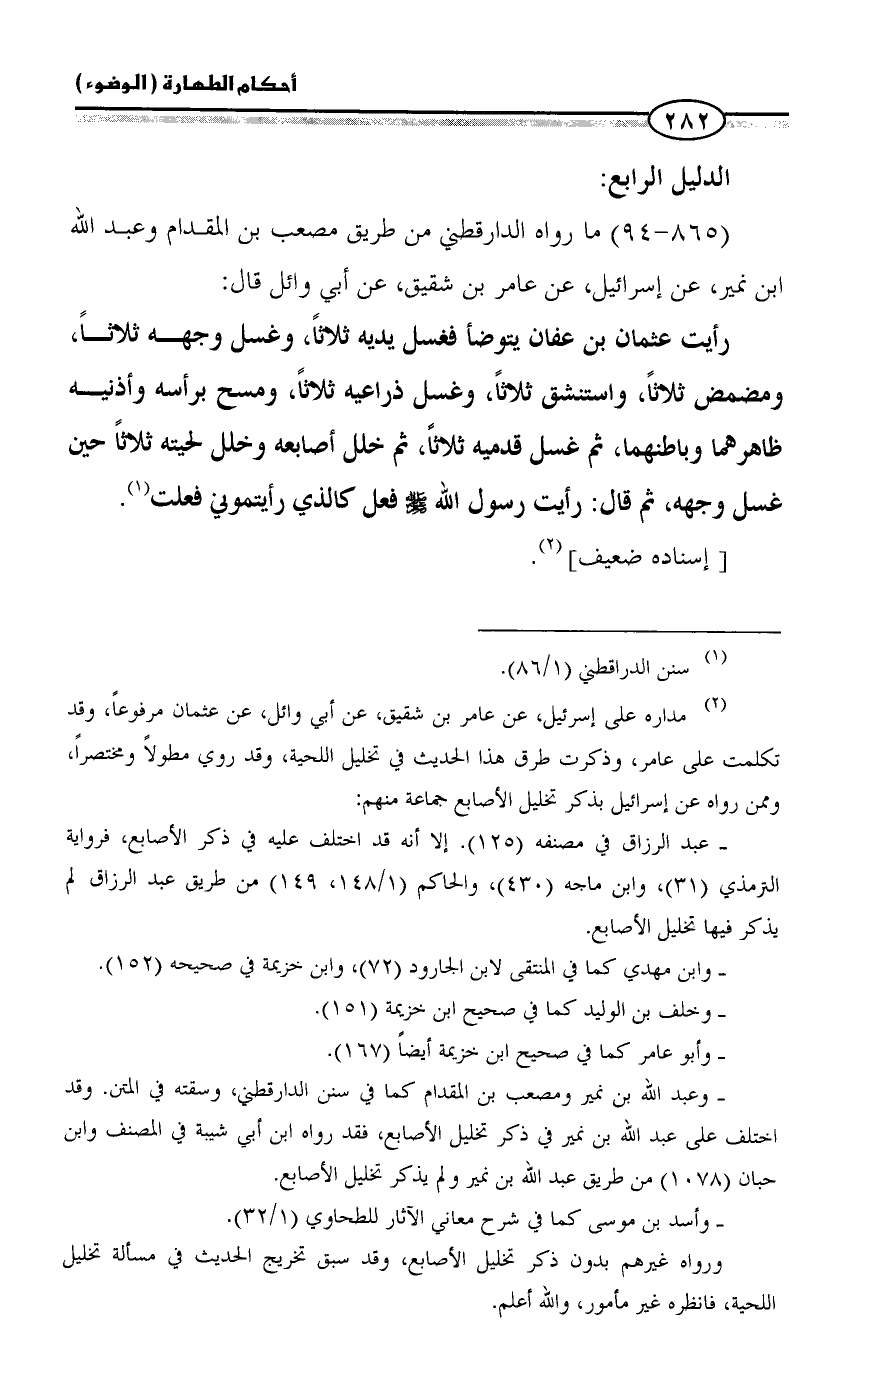 أحكام الطهارة (الوضوء)
٢٨٢
الدليل الرابع:
(٨٦٥-٩٤) ما رواه الدارقطني من طريق مصعب بن المقدام وعبد الله
ابن نمير، عن إسرائيل، عن عامر بن شقيق، عن أبي وائل قال:
رأيت عثمان بن عفان يتوضأ فغسل يديه ثلاثاً، وغسل وجهه ثلاثاً،
ومضمض ثلاثاً، واستنشق ثلاثاً، وغسل ذراعيه ثلاثاً، ومسح برأسه وأذنيه
ظاهرهما وباطنهما، ثم غسل قدميه ثلاثاً، ثم خلل أصابعه وخلل لحيته ثلاثاً حين
غسل وجهه، ثم قال: رأيت رسول الله ﷺ فعل كالذي رأيتموني فعلت(١).
[إسناده ضعيف](٢).
(١) سنن الدراقطني (٨٦/١).
(٢) مداره على إسرئيل، عن عامر بن شقيق، عن أبي وائل، عن عثمان مرفوعاً، وقد
تكلمت على عامر، وذكرت طرق هذا الحديث في تخليل اللحية، وقد روي مطولاً ومختصراً،
وممن رواه عن إسرائيل بذكر تخليل الأصابع جماعة منهم:
ـ عبد الرزاق في مصنفه (١٢٥). إلا أنه قد اختلف عليه في ذكر الأصابع، فرواية
الترمذي (٣١)، وابن ماجه (٤٣٠)، والحاكم (١٤٨/١، ١٤٩) من طريق عبد الرزاق لم
يذكر فيها تخليل الأصابع.
ـ وابن مهدي كما في المنتقى لابن الجارود (٧٢)، وابن خزيمة في صحيحه (١٥٢).
ـ وخلف بن الوليد كما في صحيح ابن خزيمة (١٥١).
ـ وأبو عامر كما في صحيح ابن خزيمة أيضاً (١٦٧).
ـ وعبد الله بن نمير ومصعب بن المقدام كما في سنن الدارقطني، وسقته في المتن. وقد
اختلف على عبد الله بن نمير في ذكر تخليل الأصابع، فقد رواه ابن أبي شيبة في المصنف وابن
حبان (١٠٧٨) من طريق عبد الله بن نمير ولم يذكر تخليل الأصابع.
ـ وأسد بن موسى كما في شرح معاني الآثار للطحاوي (٣٢/١).
ورواه غيرهم بدون ذكر تخليل الأصابع، وقد سبق تخريج الحديث في مسألة تخليل
اللحية، فانظره غير مأمور، والله أعلم.